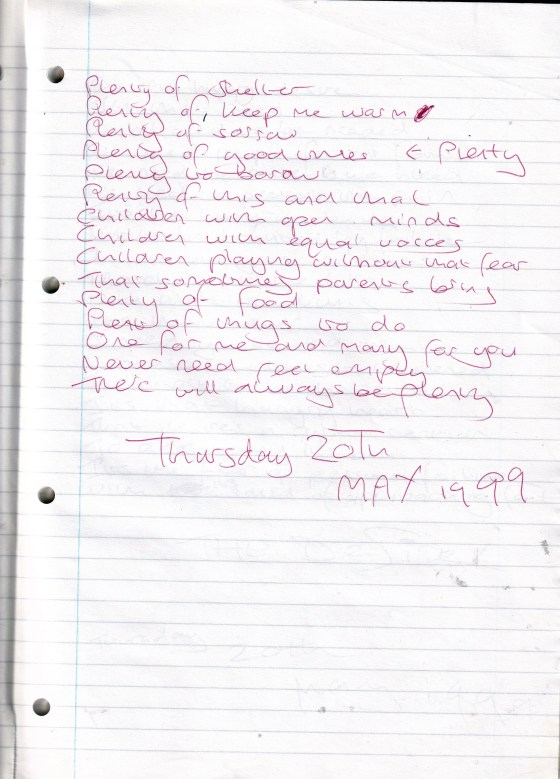 Plenty of shelter
Plenty of, keep me warm
Plenty of sorrow
Plenty of good times ← Plenty
Plenty to borow
Plenty of this and that
Children with open minds
Children with equal voices
Children playing without that fear
That sometimes parents bring
Plenty of food
Plenty of things to do
One for me and many for you
Never need feel empty
There will always be plenty
Thursday 20Th
MAY 1999